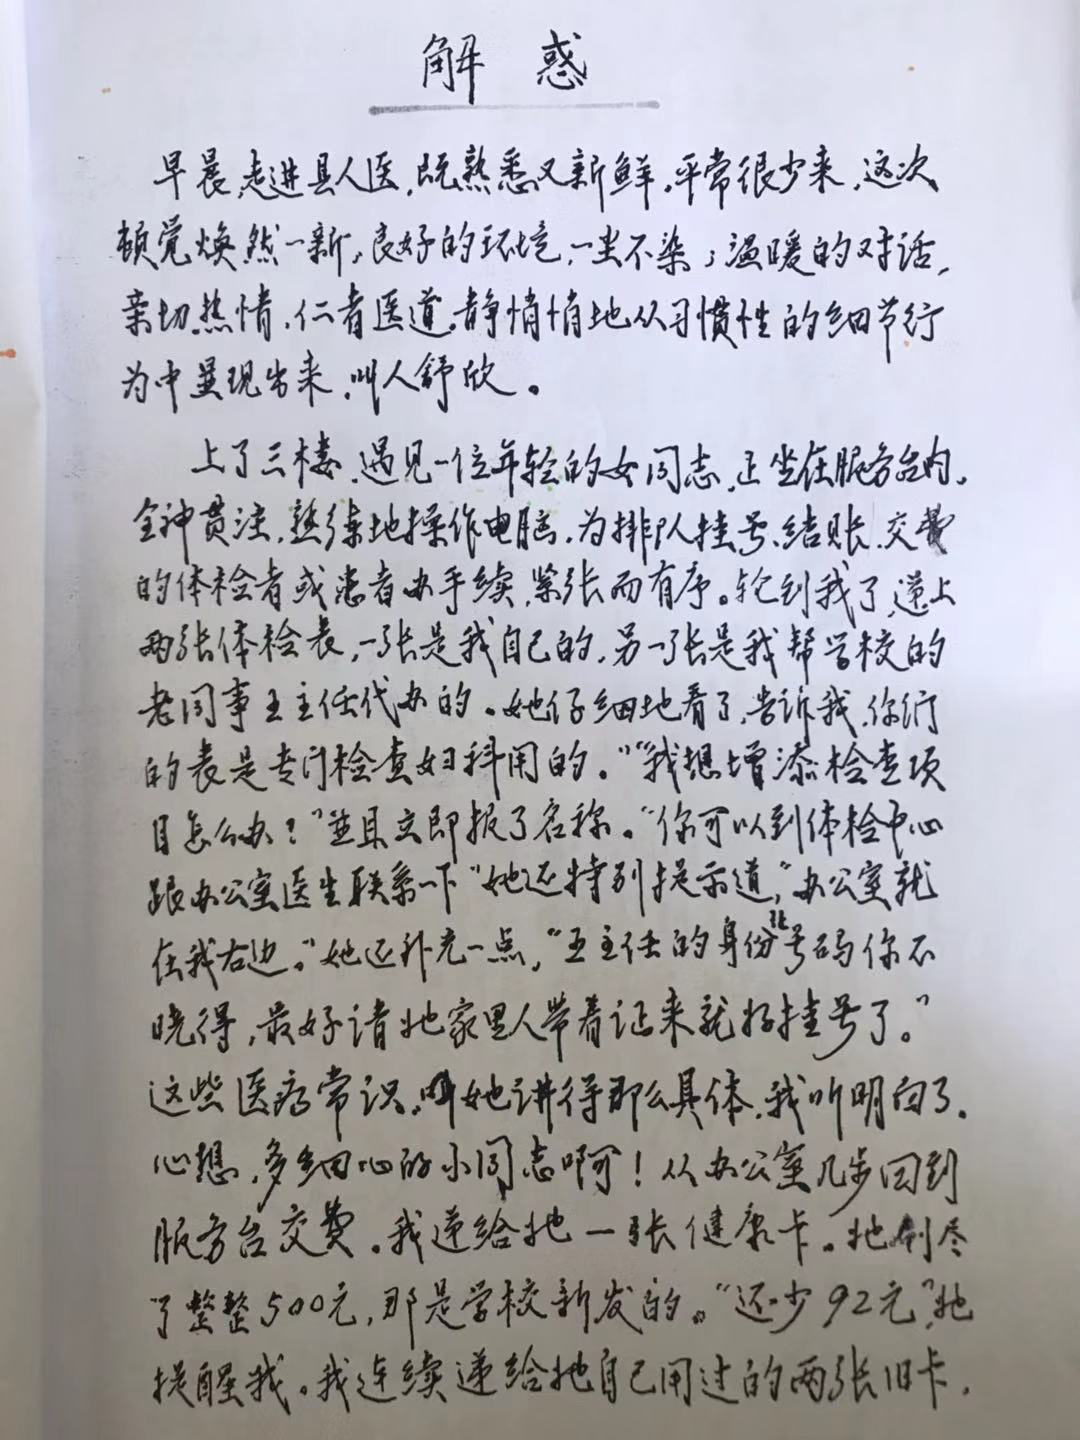 解惑
早晨,走进县人医,既熟悉又新鲜,平常很少来,这次
顿觉焕然一新,良好的环境,一尘不染;温暖的对话,
亲切热情,仁者医道,静悄悄地从习惯性的细节行
为中呈现出来,叫人舒欣。
上了三楼,遇见一位年轻的女同志,正坐在服务台内,
全神贯注,熟练地操作电脑,为排队挂号、结账、交费
的体检者或患者办手续,紧张而有序。轮到我了,递上
两张体检表,一张是我自己的,另一张是我帮学校的
老同事王主任代办的。她仔细地看了,告诉我,你们
的表是专门检查妇科用的。”“我想增添检查项
目怎么办?”并且立即报了名称。“你可以到体检中心
跟办公室医生联系一下”她还特别提示道,“办公室就
在我右边。”她还补充一点,“王主任的身份证号码你不
晓得,最好请她家里人带着证来就好挂号了。”
这些医疗常识,叫她讲得那么具体,我听明白了,
心想,多细心的小同志啊!从办公室几步回到
服务台交费。我递给她一张健康卡。她刷尽
了整整500元,那是学校新发的。“还少92元”,她
提醒我。我连续递给她自己用过的两张旧卡,